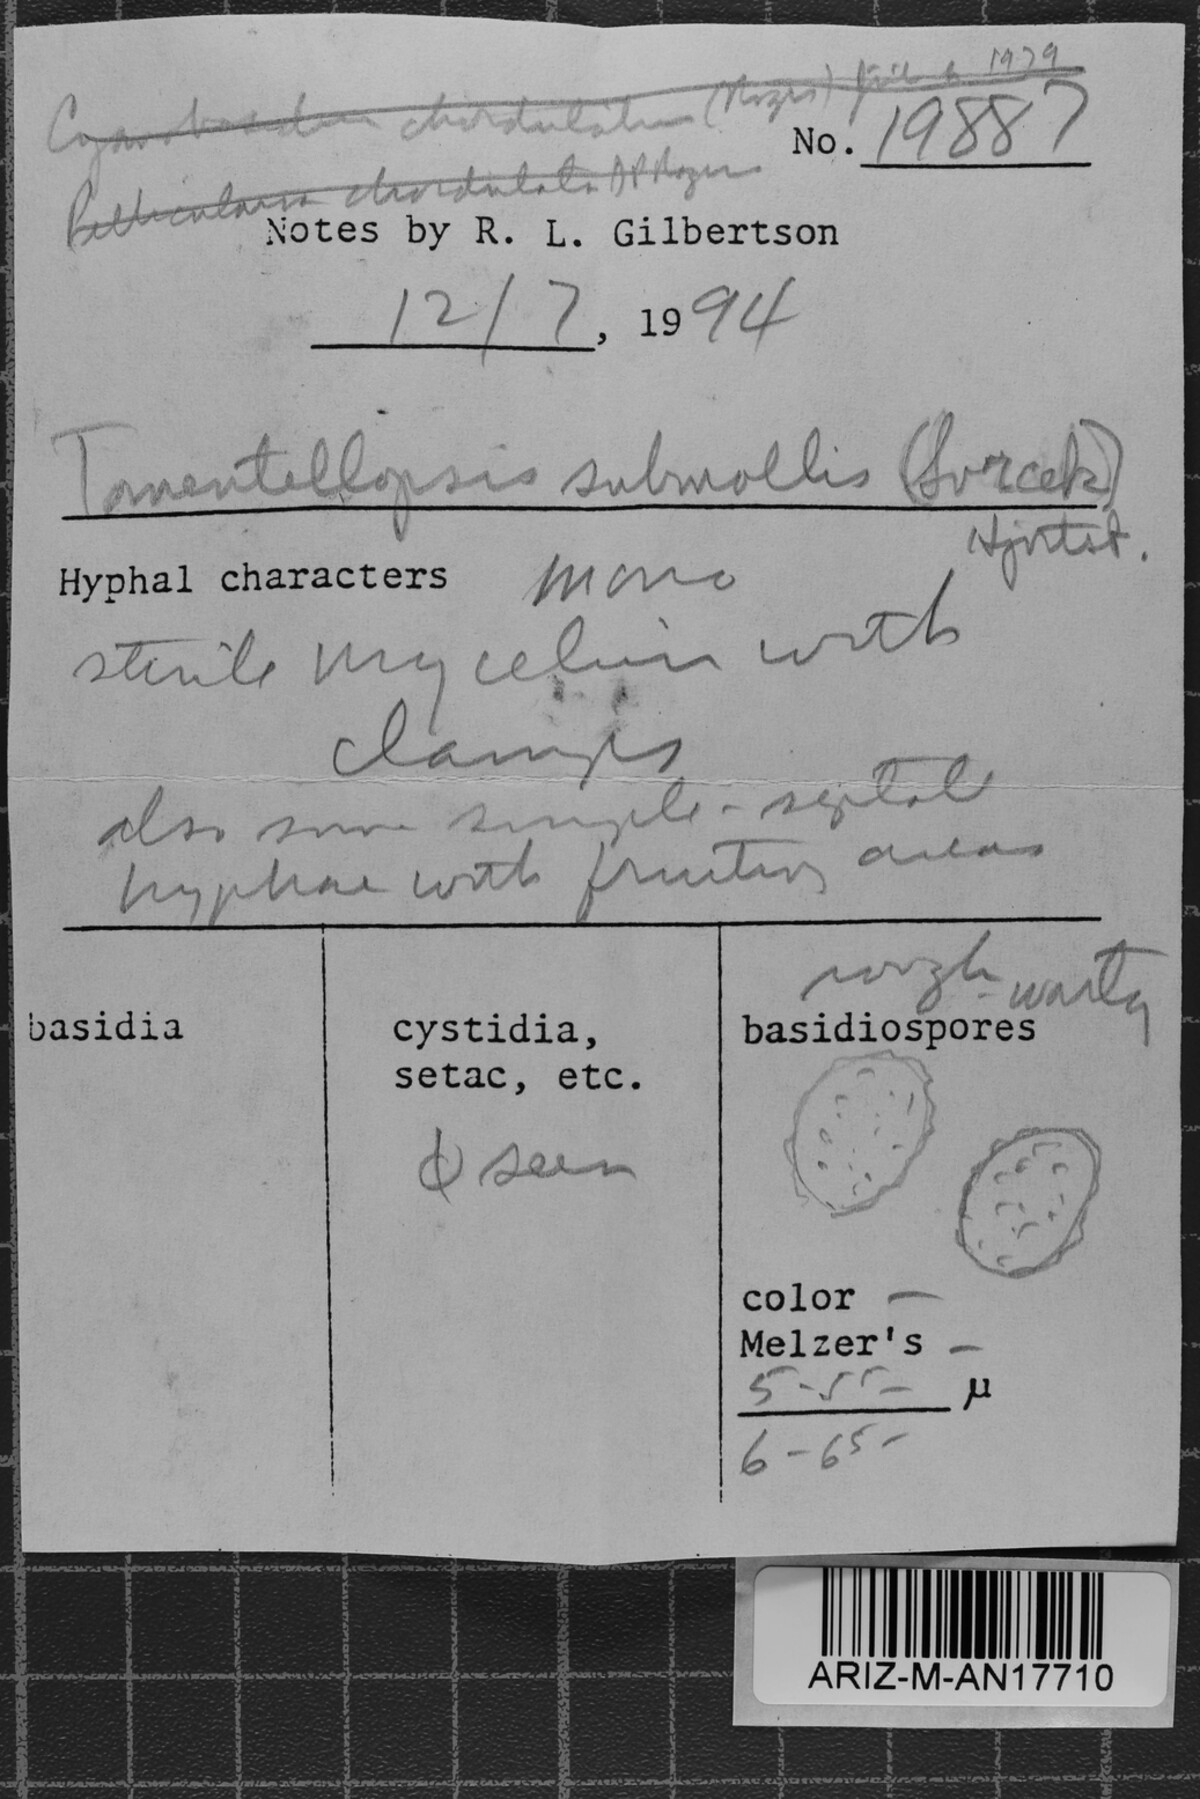 chordulatum (Rogers) 1979
No. 19887
Pellicularia chordulata D P Rogers
Notes by R. L. Gilbertson
12/7, 1994
Tomentellopsis submollis (Svrcek)
Hjortst.
Hyphal characters mono
sterile mycelium with
clamps
also some simple-septate
hyphae with fruiting areas
rough-warty
basidia
cystidia,
setac, etc.
basidiospores
ϕ seen
color —
Melzer's —
5-55- µ
6-65-
ARIZ-M-AN17710